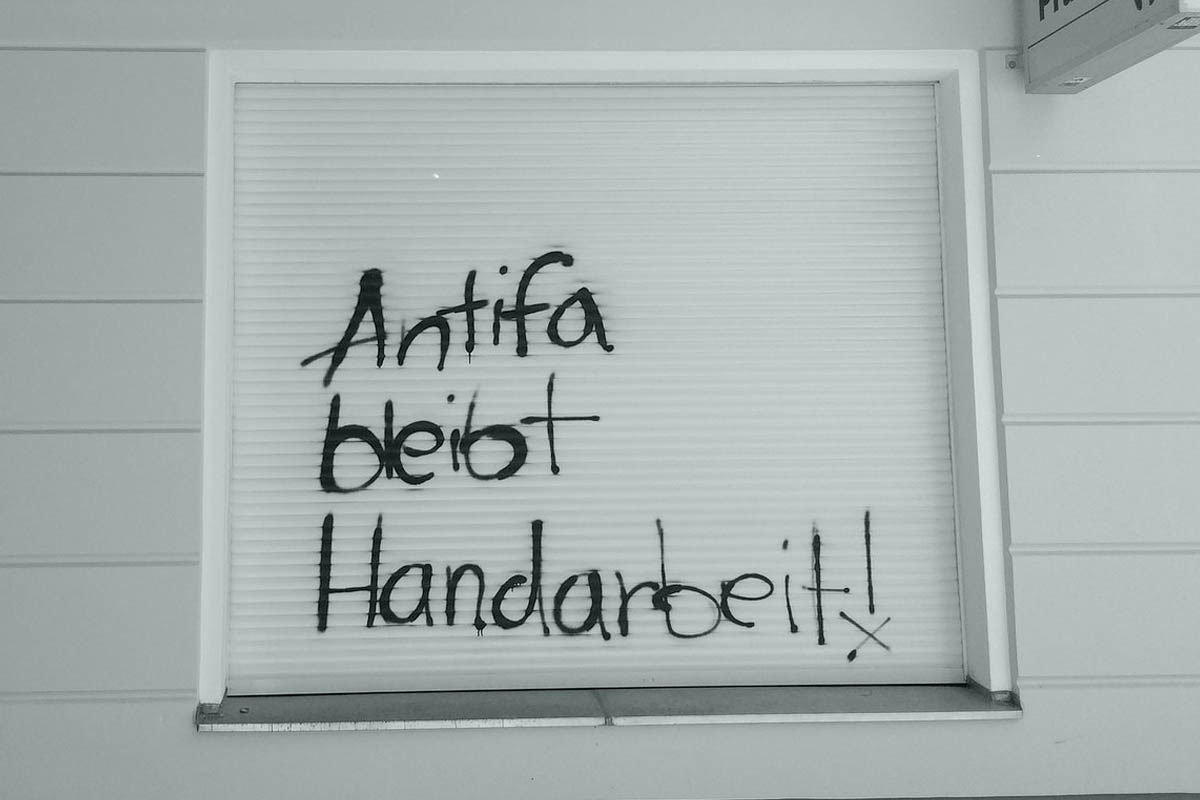 Antifa
bleibt
Handarbeit!